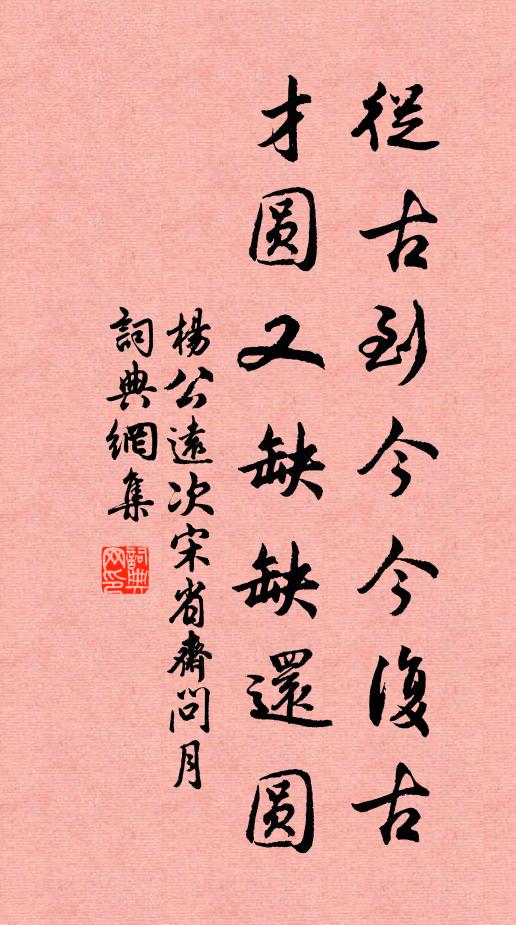 從古到今今復古
才圓又缺缺還圓
楊公遠次宋省齋問月
詞典網集
詞典网印